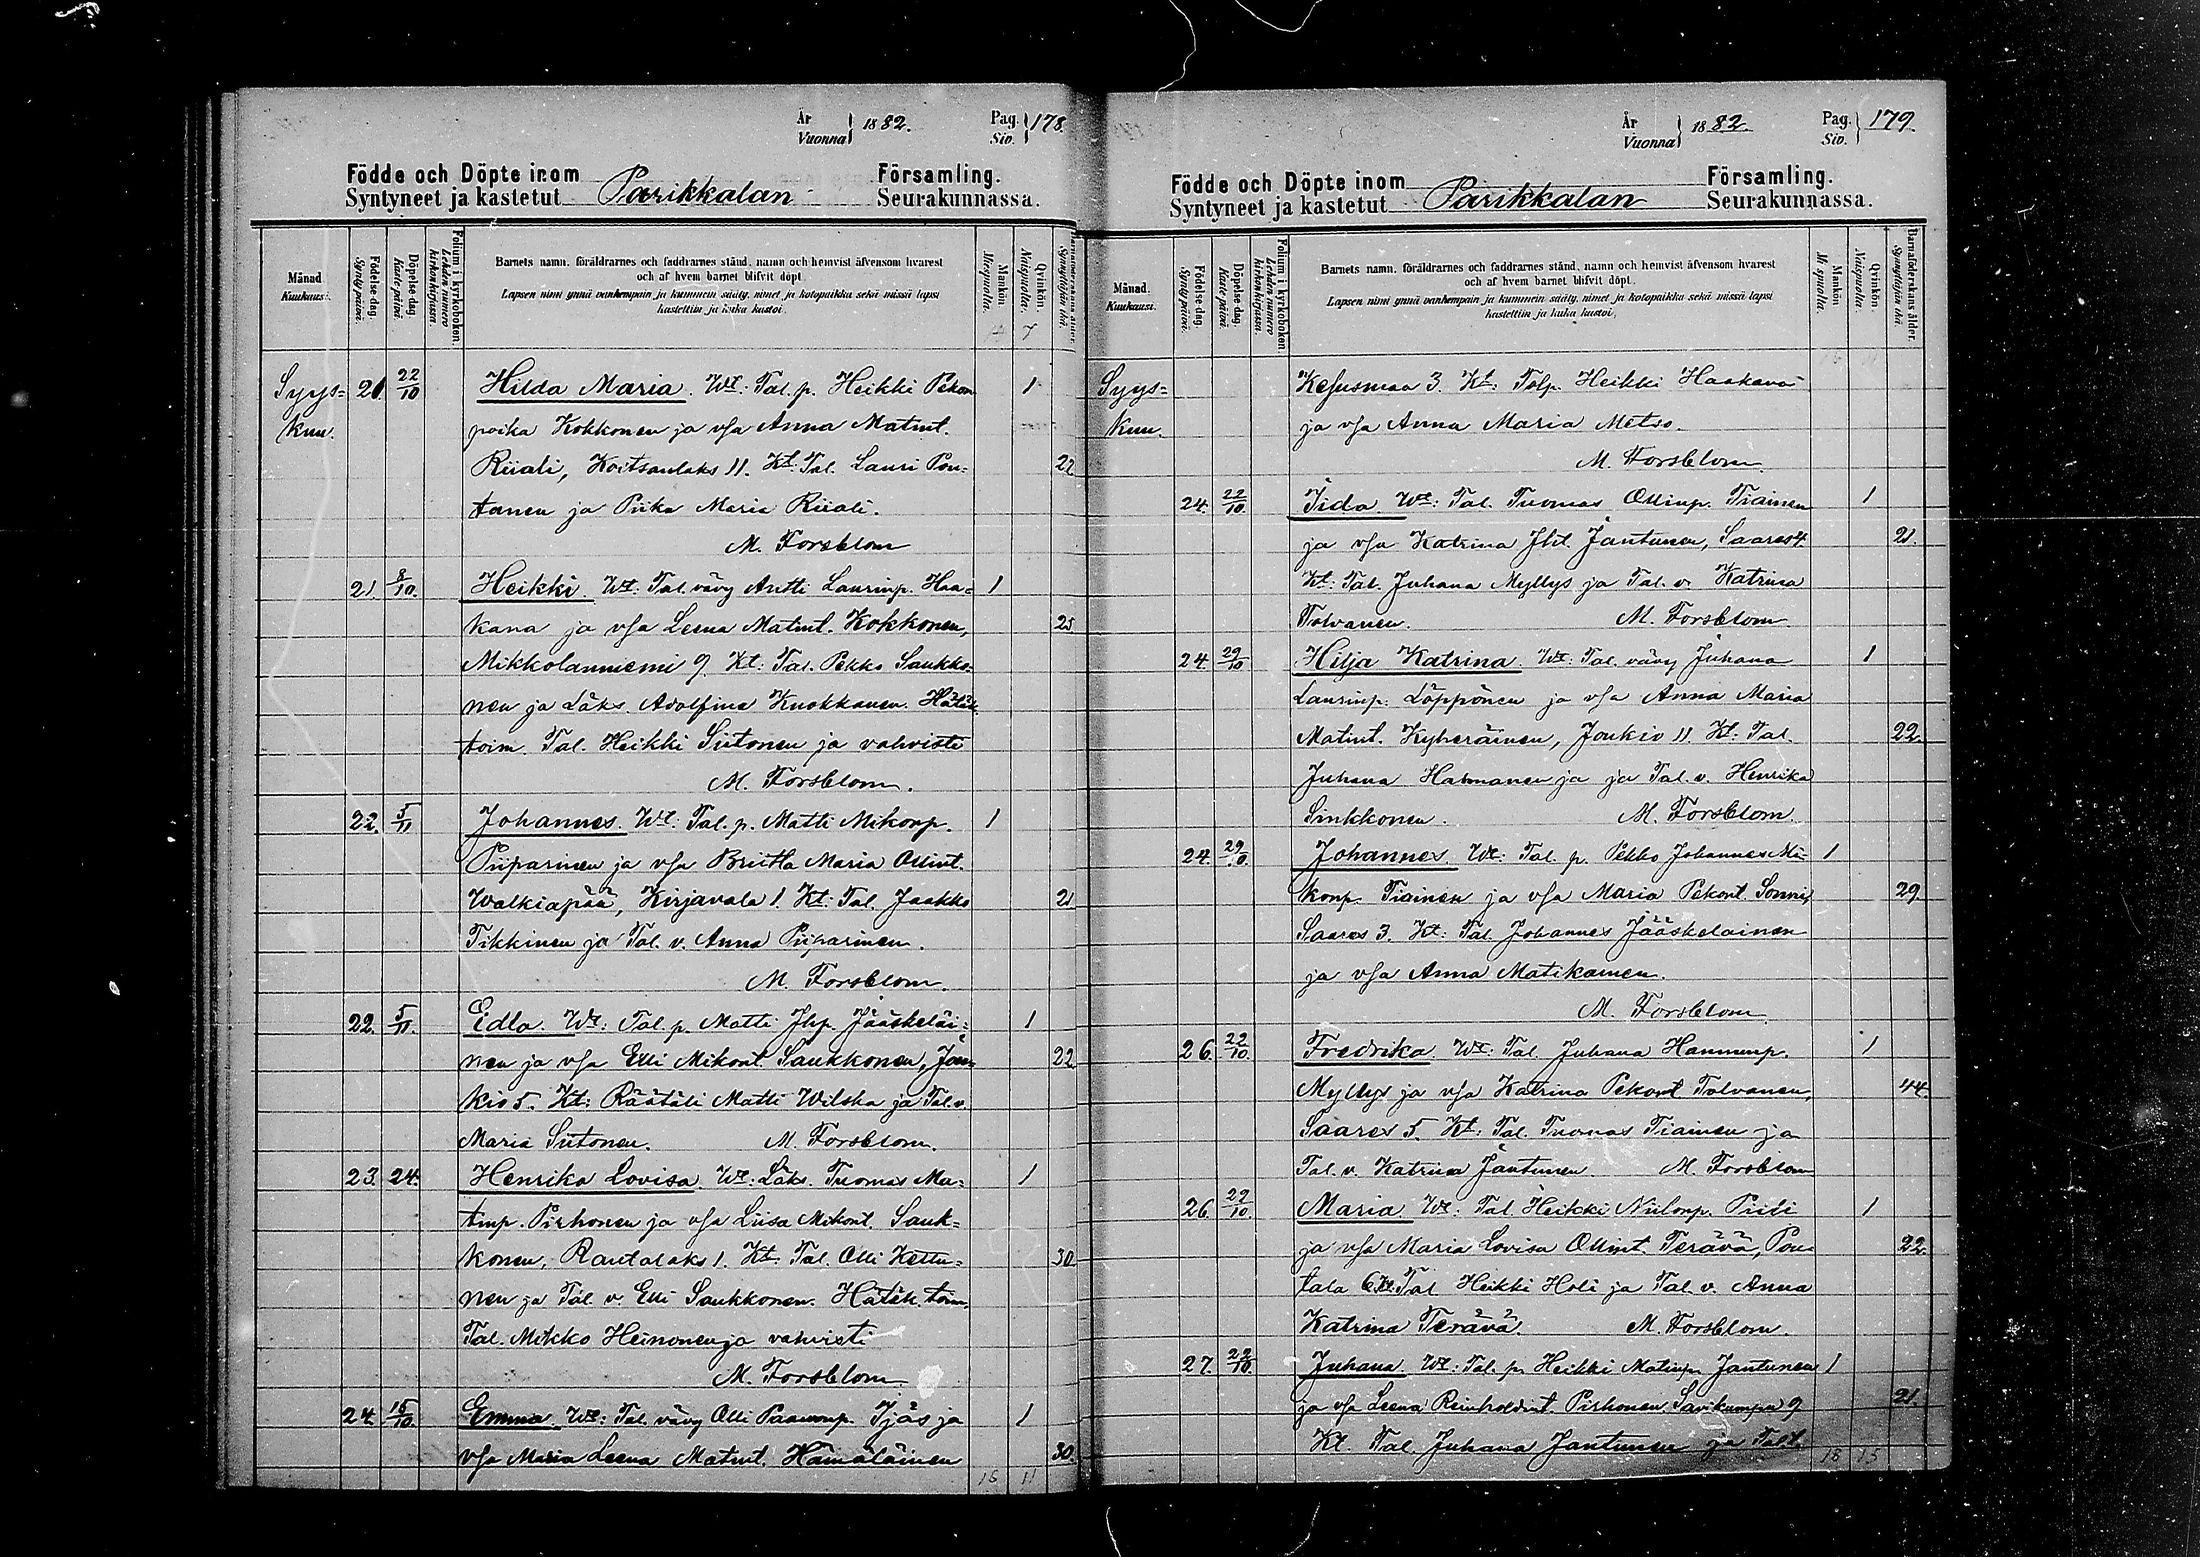 År
Vuonna } 1882. Pag. Siv. } 178.
Födde och Döpte inom Församling.
Syntyneet ja kastetut Parikkalan Seurakunnassa.
Månad. Kuukausi.
Födelse-dag. Synty päivä.
Döpelse-dag. Kaste päivä.
Folium i kyrkoboken. Lehden numero kirkonkirjassa.
Barnets namn, föräldrarnes och faddrarnes stånd, namn och hemvist äfvensom hvarest
och af hvem barnet blifvit döpt.
Lapsen nimi ynnä vanhempain ja kummein sääty, nimet ja kotopaikka sekä missä lapsi
kastettiin ja kuka kastoi.
Mankön Miespuolta.
Qvinkön. Naispuolta.
Barnaföderskans ålder. Synnyttäjän ikä.
7
Syys= 21. 22/10 Hilda Maria. Wt: Tal. p. Heikki Pekon 1
kuu. poika Kokkonen ja vsa Anna Matint.
Riiali, Koitsanlaks 11. Kt: Tal. Lauri Pon= 22
tanen ja Piika Maria Riiali.
M. Forsblom
21. 8/10. Heikki Wt: Tal. vävy Antti Laurinp. Haa= 1
kana ja vsa Leena Matint. Kokkonen, 25
Mikkolanniemi 9. Kt: Tal. Pekko Saukko=
nen ja Läks. Adolfina Kuokkanen. Hätäk.
toim. Tal. Heikki Siitonen ja vahvisti
M. Forsblom.
22. 5/11 Johannes. Wt: Tal. p. Matti Mikonp. 1
Piiparinen ja vsa Briitta Maria Ollint.
Walkiapää, Kirjavala 1. Kt: Tal. Jaakko 21
Tikkinen ja Tal. v. Anna Piiparinen.
M. Forsblom.
22. 5/11. Edla. Wt: Tal. p. Matti Jhp. Jääskeläi= 1
nen ja vsa Elli Mikont. Saukkonen, Jou= 22
kio 5. Kt: Räätäli Matti Wilska ja Tal. v.
Maria Siitonen. M. Forsblom.
23. 24. Henrika Lovisa. Wt: Läks. Tuomas Ma= 1
tinp. Pirhonen ja vsa Liisa Mikont. Sauk=
konen, Rautalaks 1. Kt: Tal. Olli Kettu= 30
nen ja Tal. v. Elli Saukkonen. Hätäk. toim.
Tal. Mikko Heinonen ja vahvisti
M. Forsblom
24. 15/10. Emma. Wt: Tal. vävy Olli Paavonp. Ijäs ja 1
vsa Maria Leena Matint. Hämäläinen 30.
15 11
År
Vuonna } 1882. Pag. Siv. } 179.
Födde och Döpte inom Församling.
Syntyneet ja kastetut Parikkalan Seurakunnassa.
Månad. Kuukausi.
Födelse-dag. Synty päivä.
Döpelse-dag. Kaste päivä.
Folium i kyrkoboken. Lehden numero kirkonkirjassa.
Barnets namn, föräldrarnes och faddrarnes stånd, namn och hemvist äfvensom hvarest
och af hvem barnet blifvit döpt.
Lapsen nimi ynnä vanhempain ja kummein sääty, nimet ja kotopaikka sekä missä lapsi
kastettiin ja kuka kastoi.
Mankön Miespuolta.
Qvinkön. Naispuolta.
Barnaföderskans ålder. Synnyttäjän ikä.
Syys= Kesusmaa 3. Kt: Talp. Heikki Haakana
kuu. ja vsa Anna Maria Metso.
M. Forsblom.
24. 22/10. Iida. Wt: Tal. Tuomas Ollinp. Tiainen 1
ja vsa Katrina Jht. Jantunen, Saares 4. 21.
Kt: Tal. Juhana Myllys ja Tal. v. Katrina
Tolvanen. M. Forsblom.
24. 29/10 Hilja Katrina. Wt: Tal. vävy Juhana 1
Laurinp. Löppönen ja vsa Anna Maria
Matint. Kyheräinen, Joukio 11. Kt: Tal. 22.
Juhana Hatmanen ja ja Tal. v. Henrika
Sinkkonen. M. Forsblom.
24. 29/10. Johannes Wt: Tal. p. Pekko Johannes Mi= 1
konp. Tiainen ja vsa Maria Pekont. Sonni, 29.
Saares 3. Kt: Tal. Johannes Jääskelainen
ja vsa Anna Matikainen.
M. Forsblom.
26. 22/10. Fredrika. Wt: Tal. Juhana Hannunp. 1
Myllys ja vsa Katrina Pekont Tolvanen, 44.
Saares 5. Kt: Tal. Tuomas Tiainen ja
Tal. v. Katrina Jantunen M. Forsblom
26. 22/10. Maria Wt: Tal. Heikki Niilonp. Piili 1
ja vsa Maria Lovisa Ollint. Terävä, Pou= 22.
tala 6. Kt: Tal. Heikki Holi ja Tal. v. Anna
Katrina Terävä. M. Forsblom.
27. 22/10. Juhana. Wt: Tal. p. Heikki Matinp. Jantunen 1
ja vsa Leena Reinholdint. Pirhonen, Savikumpu 9. 21.
Kt. Tal. Juhana Jantunen ja Tal.
18 15